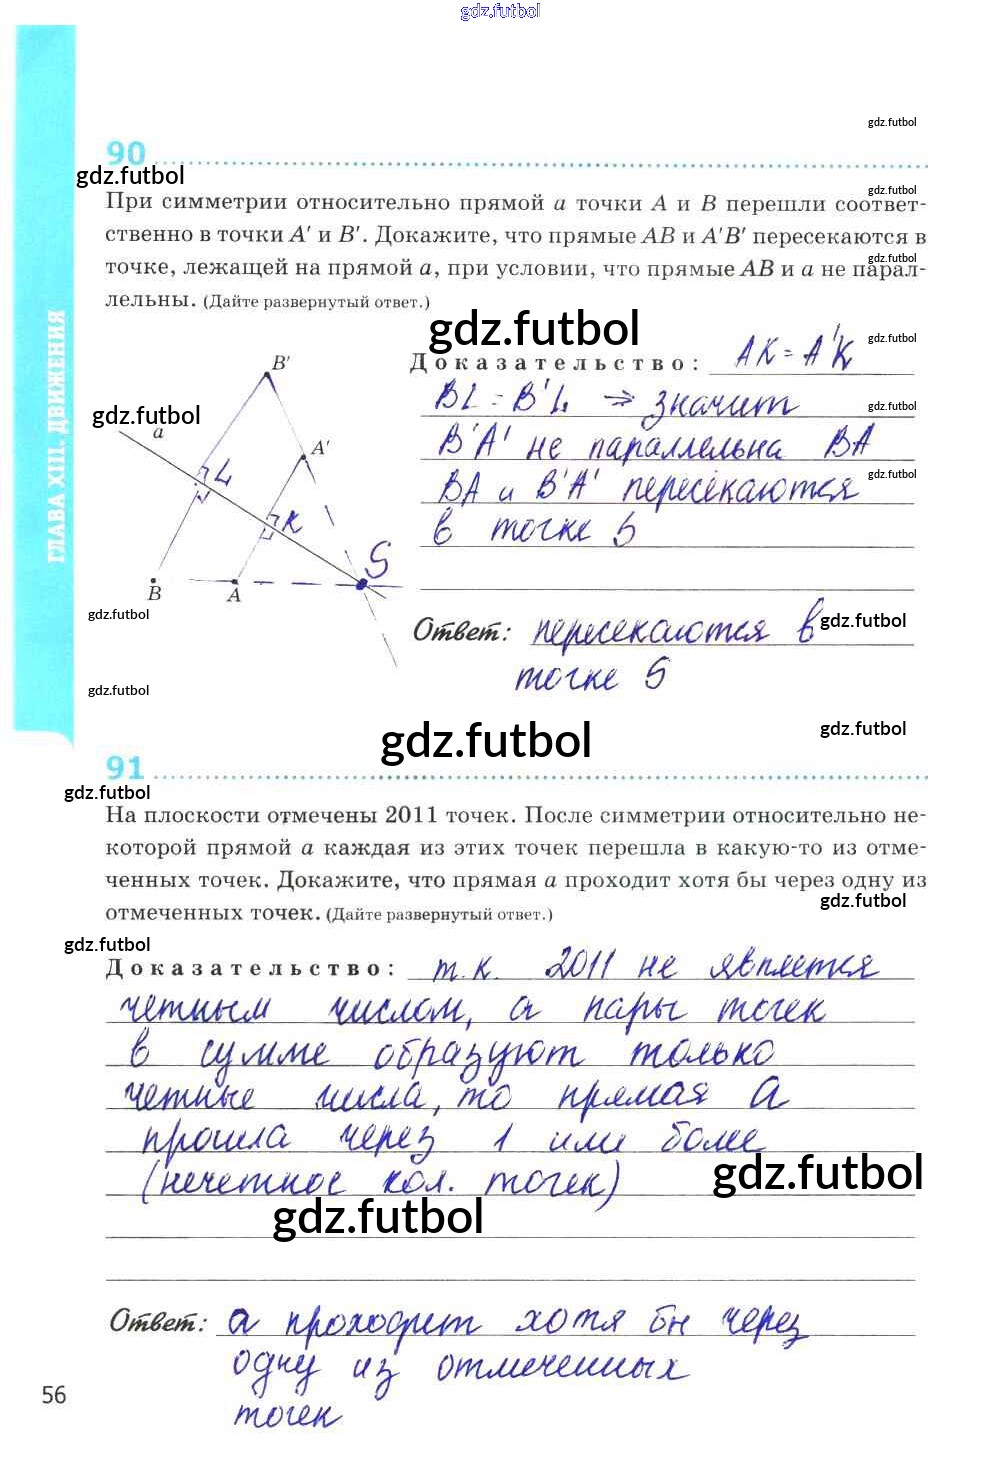 gdz.futbol
gdz.futbol
90
gdz.futbol
gdz.futbol
При симметрии относительно прямой a точки A и B перешли соответ-
ственно в точки A′ и B′. Докажите, что прямые AB и A′B′ пересекаются в
gdz.futbol
точке, лежащей на прямой a, при условии, что прямые AB и a не парал-
лельны. (Дайте развернутый ответ.)
gdz.futbol
gdz.futbol
Доказательство: AK = A'K
BL = B'L ⇒ значит
gdz.futbol
B'A' не параллельна BA
gdz.futbol
BA и B'A' пересекаются
в точке S
B′
gdz.futbol
a
A′
L
K
S
B
A
gdz.futbol
Ответ: пересекаются в
gdz.futbol
точке S
gdz.futbol
ГЛАВА XIII. ДВИЖЕНИЯ
gdz.futbol
gdz.futbol
91
gdz.futbol
На плоскости отмечены 2011 точек. После симметрии относительно не-
которой прямой a каждая из этих точек перешла в какую-то из отме-
ченных точек. Докажите, что прямая a проходит хотя бы через одну из
gdz.futbol
отмеченных точек. (Дайте развернутый ответ.)
gdz.futbol
Доказательство: т.к. 2011 не является
четным числом, а пары точек
в сумме образуют только
четные числа, то прямая a
прошла через 1 или более
gdz.futbol
(нечетное кол. точек)
gdz.futbol
Ответ: a проходит хотя бы через
одну из отмеченных
точек
56